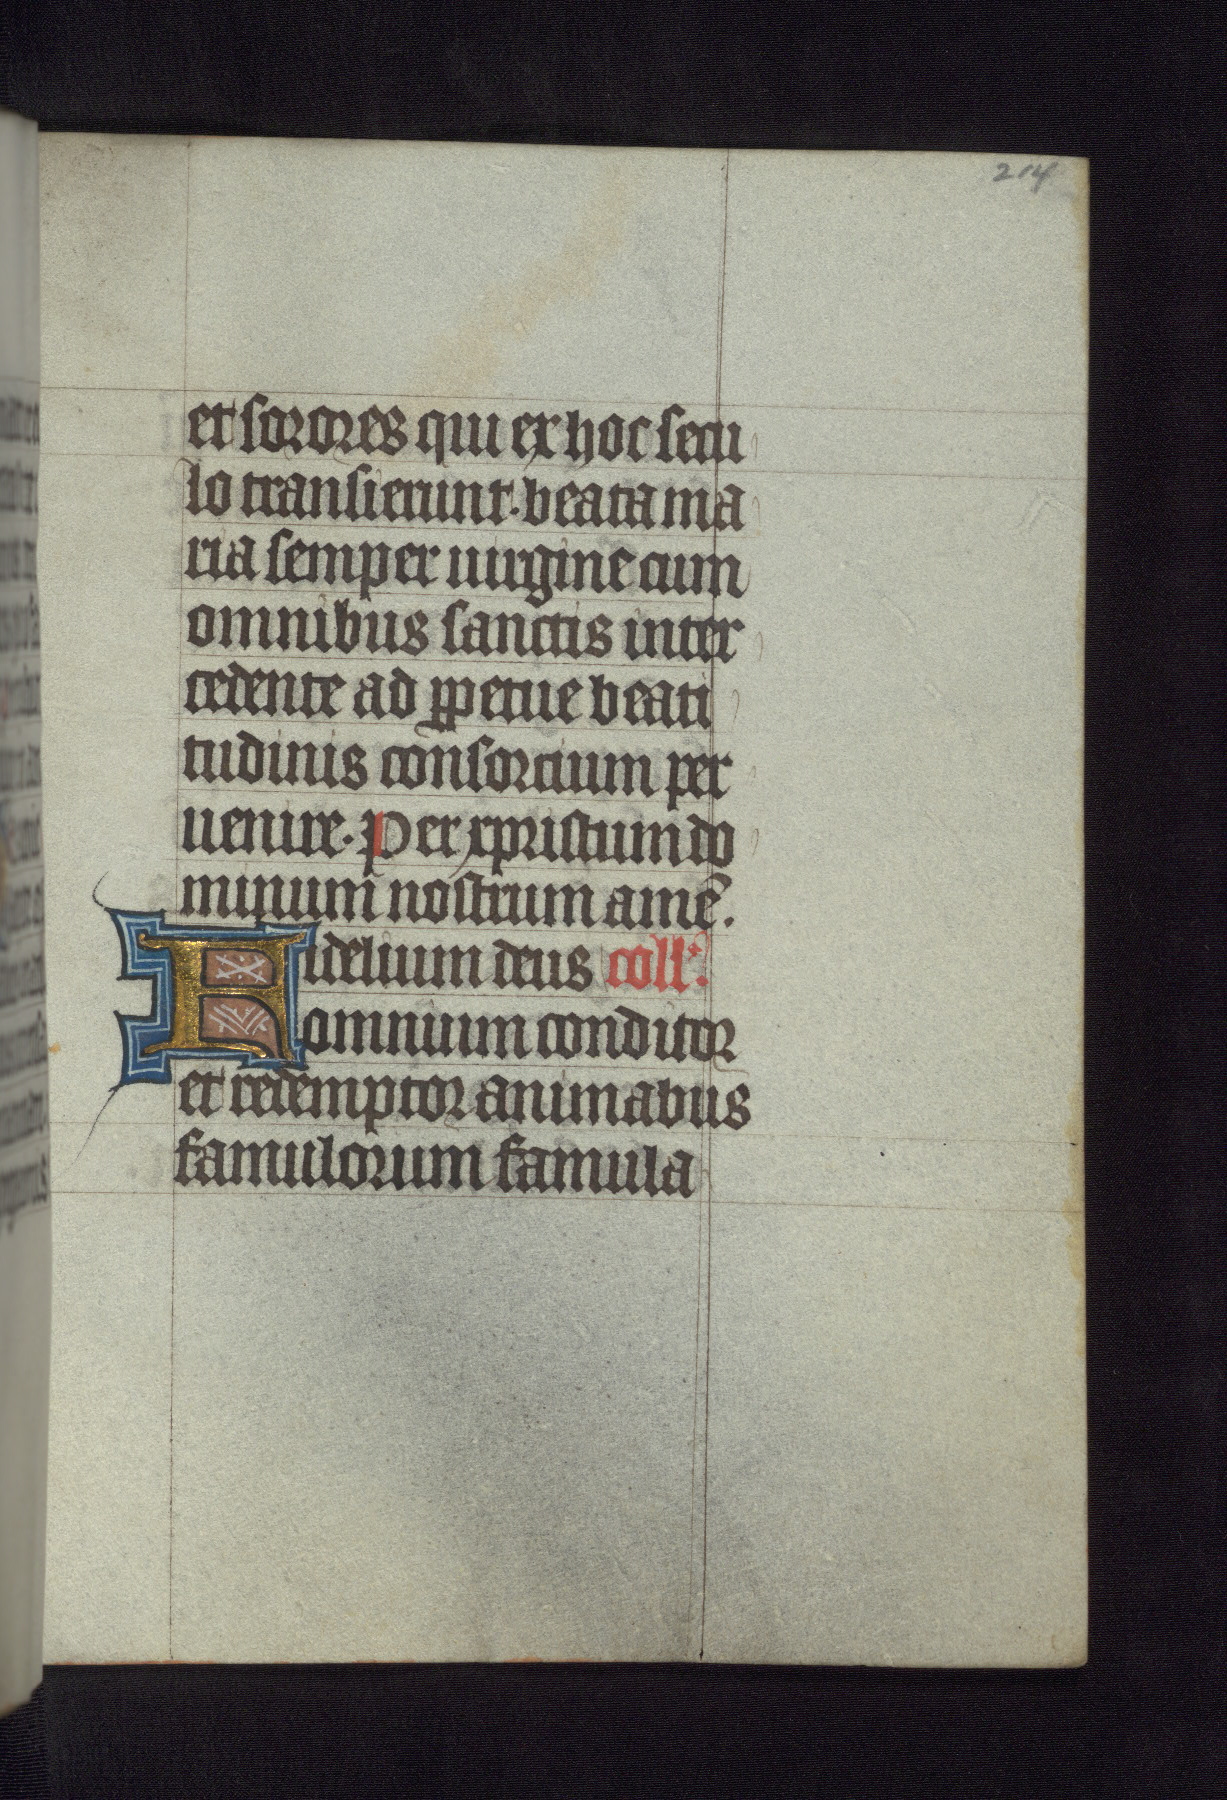 214
et sorores qui ex hoc secu
lo transierunt. beata ma
ria semper uirgine cum
omnibus sanctis inter
cedente ad ꝑpetue beati
tudinis consorcium per
uenire. Per xpristum do
minum nostrum amē.
Fidelium deus coll'.
omnium conditor
et redemptor animabus
famulorum famula